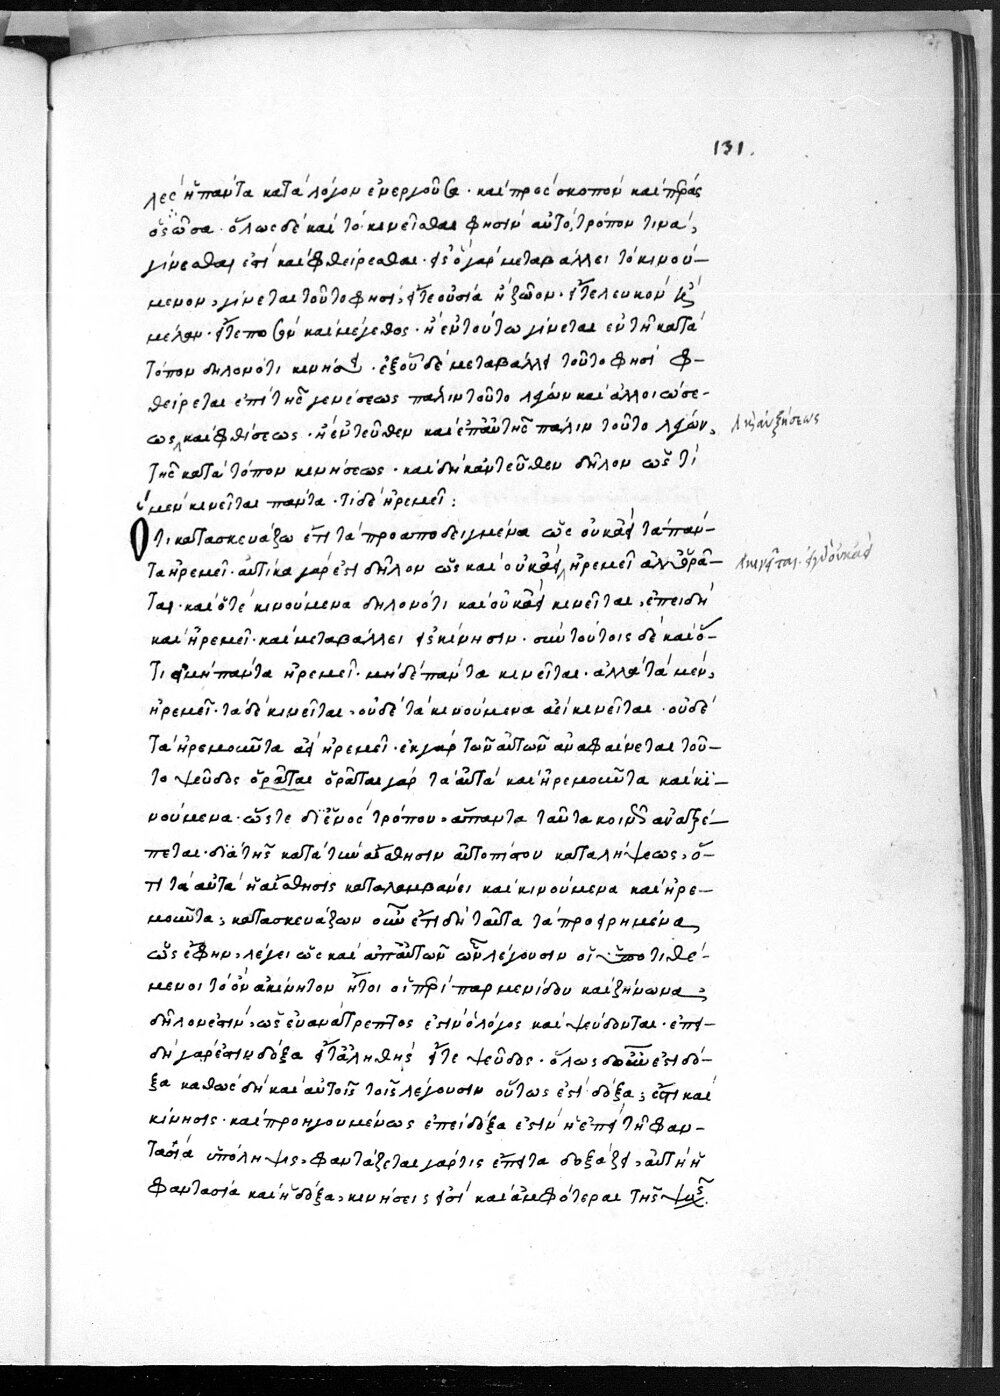 131.
λες ἢ πάντα κατὰ λόγον ἐνεργοῦσι· καὶ πρὸς σκοπὸν καὶ πέρας
ὁρῶσα. ὅλως δὲ καὶ τὸ κινεῖσθαι φησὶν αὐτὸ, τρόπον τινὰ,
γίνεσθαι ἐστὶ καὶ φθείρεσθαι· εἰς ὃ γὰρ μεταβάλλει τὸ κινού-
μενον, γίνεται τοῦτο φησὶ, εἴτε οὐσία ἢ ζῶον· εἴτε λευκὸν ἢ
μέλαν· εἴτε ποσὸν καὶ μέγεθος· ἢ ἐν τούτω γίνεται ἐν τῆ κατὰ
τόπον δηλονότι κινήσει· ἐξ οὗ δὲ μεταβάλλει τοῦτο φησὶ φ-
θείρεται ἐπὶ τῆς γενέσεως πάλιν τοῦτο λέγων καὶ ἀλλοιώσε-
ως, καὶ φθίσεως· ἢ ἐντεῦθεν καὶ ἐπ' αὐτῆς πάλιν τοῦτο λέγων, καὶ αὐξήσεως
τῆς κατὰ τόπον κινήσεως· καὶ δὴ κἀντεῦθεν δῆλον ὡς τί
μὲν κινεῖται πάντα· τί δὲ ἠρεμεῖ:
Ὅτι κατασκευάζω ἔτι τὰ προαποδειγμένα ὡς οὐκ ἀεὶ τὰ πάν-
τα ἠρεμεῖ· αὐτίκα γάρ ἐστι δῆλον ὡς καὶ οὐκ ἀεὶ ἠρεμεῖ ἀλλ' ὁρᾶ- κινεῖται·
ται· καὶ ὅτε κινούμενα δηλονότι καὶ οὐκ ἀεὶ κινεῖται, ἐπειδὴ
καὶ ἠρεμεῖ· καὶ μεταβάλλει εἰς κίνησιν· σὺν τούτοις δὲ καὶ ὅ-
τι μὴ πάντα ἠρεμεῖ· μηδὲ πάντα κινεῖται· ἀλλὰ τὰ μὲν,
ἠρεμεῖ· τὰ δὲ κινεῖται, οὐδὲ τὰ κινούμενα ἀεὶ κινεῖται· οὐδὲ
τὰ ἠρεμοῦντα ἀεὶ ἠρεμεῖ· ἐκ γὰρ τῶν αὐτῶν ἀναφαίνεται τοῦ-
το ψεῦδος ὁρᾶται ὁρᾶται γὰρ τὰ αὐτὰ καὶ ἠρεμοῦντα καὶ κι-
νούμενα· ὥστε δι' ἑνὸς τρόπου, ἅπαντα ταῦτα κοινῶς ἀνατρέ-
πεται· διὰ τῆς κατὰ τὴν αἴσθησιν αὐτοπίστου καταλήψεως, ὅ-
τι τὰ αὐτὰ ἡ αἴσθησις καταλαμβάνει καὶ κινούμενα καὶ ἠρε-
μοῦντα, κατασκευάζων οὖν ἔτι δὴ ταῦτα τὰ προειρημένα
ὡς ἔφην, λέγει ὡς καὶ ἀπ' αὐτῶν ὧν λέγουσιν οἱ ὑποτιθέ-
μενοι τὸ ὂν ἀκίνητον ἤτοι οἱ περὶ παρμενίδου καὶ ζήνωνα,
δῆλον ἐστὶν, ὡς εὐανάτρεπτος ἐστὶν ὁ λόγος καὶ ψεύδονται· ἐπει-
δὴ γάρ ἐστιν δόξα εἴτ' ἀληθὴς εἴτε ψεῦδος· ὅλως δ' οὖν ἐστὶ δό-
ξα καθὼς δὴ καὶ αὐτοῖς τοῖς λέγουσιν οὕτως ἐστὶ δόξα, ἔστι καὶ
κίνησις· καὶ προηγουμένως ἐπεὶ δόξα ἐστὶν ἡ ἐπὶ τῆ φαν-
τασία ὑπόληψις, φαντάζεται γάρ τις ἔπειτα δοξάζει, αὐτὴ ἡ
φαντασία καὶ ἡ δόξα, κινήσεις εἰσὶ καὶ ἀμφότεραι τῆς ψυχῆς.